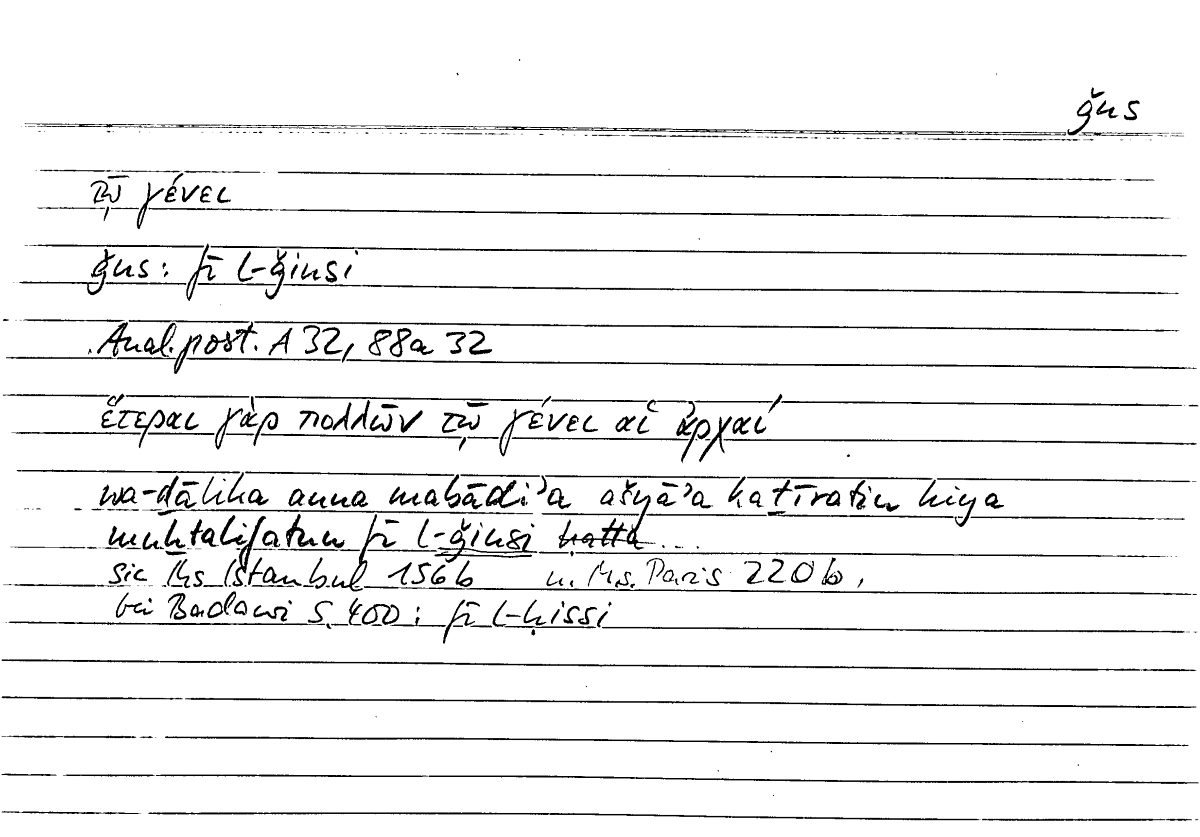 ǧns
τῷ γένει
ǧns: fī l-ǧinsi
Anal. post. A 32, 88a 32
ἕτεραι γὰρ πολλῶν τῷ γένει αἱ ἀρχαί
wa-ḏālika anna mabādiʾa ašyāʾa kaṯīratin hiya
muḫtalifatun fī l-ǧinsi ḥattā ...
sic Hs Istanbul 156b u. Ms. Paris 220b,
bei Badawi S. 400: fī l-ḥissi